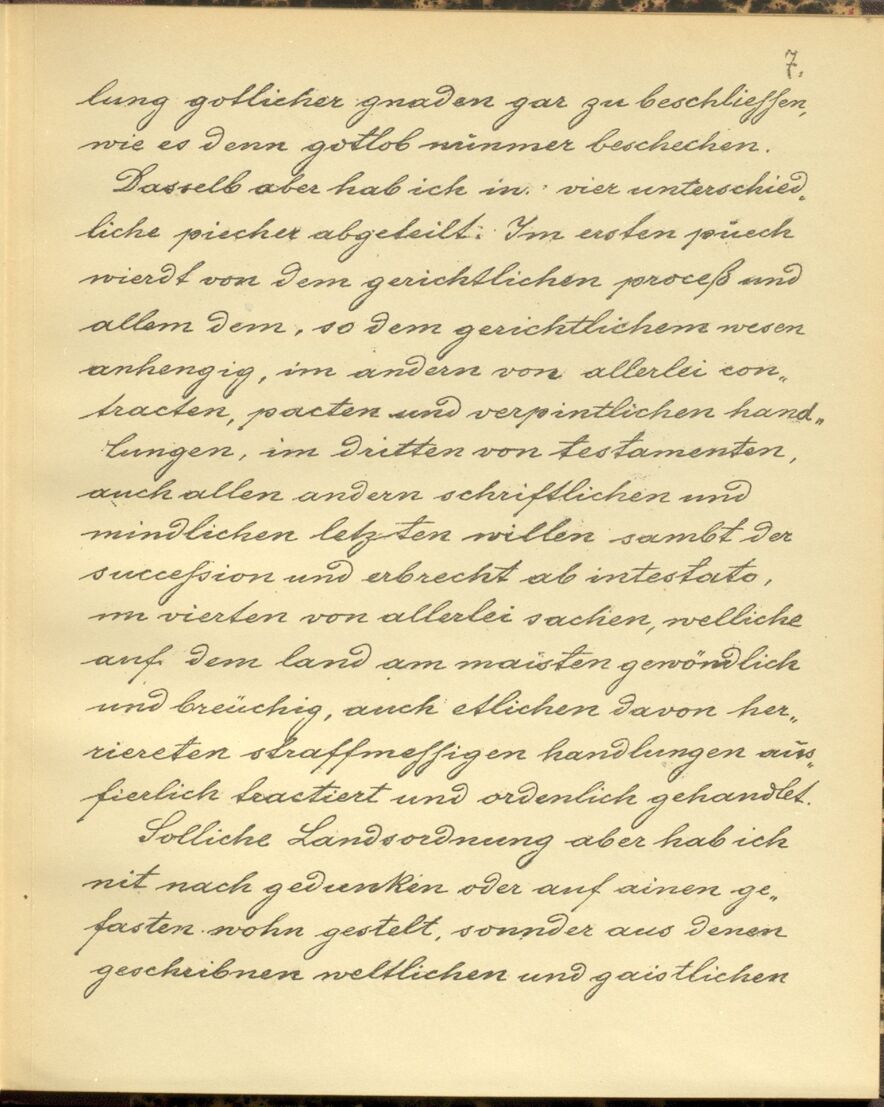 7.
lung gotlicher gnaden gar zu beschliessen,
wie es denn gotlob nũnmer beschechen.
Dasselb aber hab ich in vier unterschied„
liche piecher abgeteilt: Im ersten püech
wierdt von dem gerichtlichen proceß und
allem dem, so dem gerichtlichem wesen
anhengig, im andern von allerlei con„
tracten, pacten und verpintlichen hand„
lungen, im dritten von testamenten,
auch allen andern schriftlichen und
mindlichen letzten willen sambt der
succession und erbrecht ab intestato,
im vierten von allerlei sachen, welliche
auf dem land am maisten gewöndlich
und breüchig, auch etlichen davon her„
riereten straffmessigen handlungen aũs„
fierlich tractiert und ordenlich gehandlet.
Solliche Landsordnung aber hab ich
nit nach gedunken oder auf ainen ge„
fasten wohn gestelt, sonnder aus denen
geschribnen weltlichen und gaistlichen